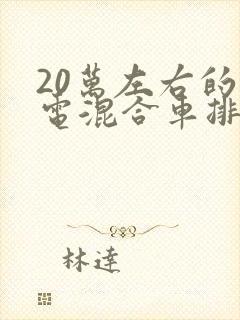 20萬左右的
電混合車排
林達